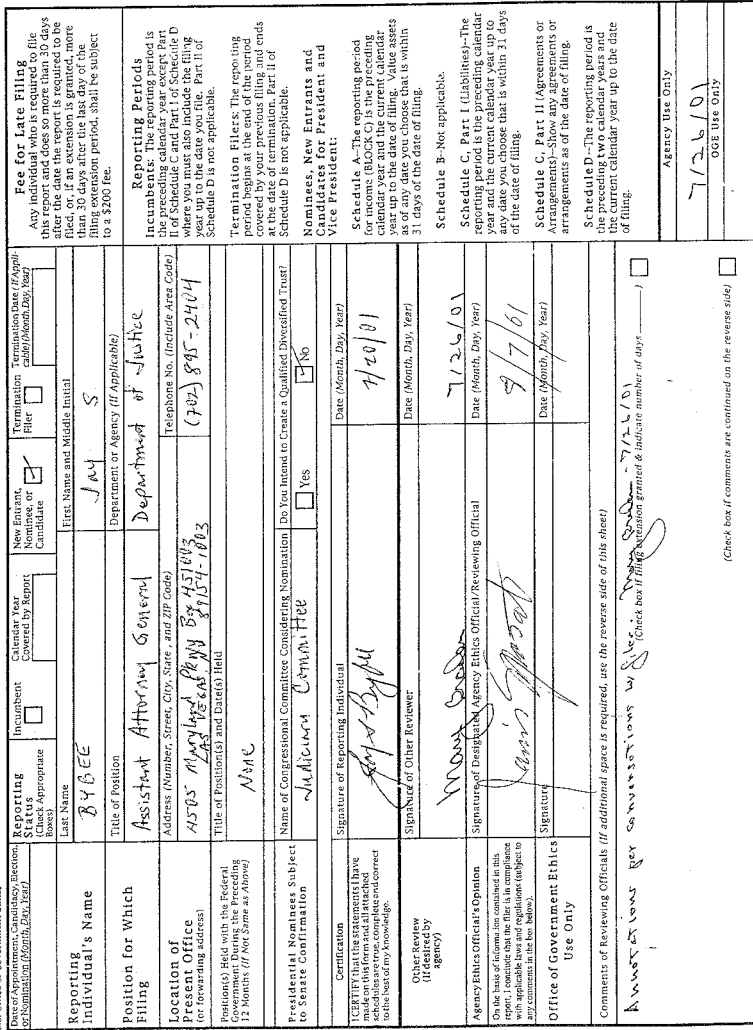 Date of Appointment, Candidacy, Election, or Nomination (Month, Day, Year)
Reporting Status
(Check Appropriate Boxes)
Incumbent
Calendar Year Covered by Report
New Entrant, Nominee, or Candidate
Termination Filer
Termination Date (If Applicable) (Month, Day, Year)
Reporting Individual's Name
Last Name
BYBEE
First Name and Middle Initial
Jay S
Position for Which Filing
Title of Position
Assistant Attorney General
Department or Agency (If Applicable)
Department of Justice
Location of Present Office
(or forwarding address)
Address (Number, Street, City, State, and ZIP Code)
4505 Maryland Pkwy Box 451003
LAS VEGAS, NV 89154-1003
Telephone No. (Include Area Code)
(702) 895-2404
Position(s) Held with the Federal Government During the Preceding 12 Months (If Not Same as Above)
Title of Position(s) and Date(s) Held
None
Presidential Nominees Subject to Senate Confirmation
Name of Congressional Committee Considering Nomination
Judiciary Committee
Do You Intend to Create a Qualified Diversified Trust?
Yes
No
Certification
I CERTIFY that the statements I have made on this form and all attached schedules are true, complete and correct to the best of my knowledge.
Signature of Reporting Individual
Jay S Bybee
Date (Month, Day, Year)
7/20/01
Other Review
(If desired by agency)
Signature of Other Reviewer
Date (Month, Day, Year)
7/26/01
Agency Ethics Official's Opinion
On the basis of information contained in this report, I conclude that the filer is in compliance with applicable laws and regulations (subject to any comments in the box below).
Signature of Designated Agency Ethics Official/Reviewing Official
Date (Month, Day, Year)
Office of Government Ethics
Use Only
Signature
Date (Month, Day, Year)
Comments of Reviewing Officials (If additional space is required, use the reverse side of this sheet)
Annotations per conversations w/ filer. - 7/26/01
(Check box if filing extension granted & indicate number of days ______)
(Check box if comments are continued on the reverse side)
Fee for Late Filing
Any individual who is required to file
this report and does so more than 30 days
after the date the report is required to be
filed, or, if an extension is granted, more
than 30 days after the last day of the
filing extension period, shall be subject
to a $200 fee.
Reporting Periods
Incumbents: The reporting period is
the preceding calendar year except Part
II of Schedule C and Part I of Schedule D
where you must also include the filing
year up to the date you file. Part II of
Schedule D is not applicable.
Termination Filers: The reporting
period begins at the end of the period
covered by your previous filing and ends
at the date of termination. Part II of
Schedule D is not applicable.
Nominees, New Entrants and
Candidates for President and
Vice President:
Schedule A--The reporting period
for income (BLOCK C) is the preceding
calendar year and the current calendar
year up to the date of filing. Value assets
as of any date you choose that is within
31 days of the date of filing.
Schedule B--Not applicable.
Schedule C, Part I (Liabilities)--The
reporting period is the preceding calendar
year and the current calendar year up to
any date you choose that is within 31 days
of the date of filing.
Schedule C, Part II (Agreements or
Arrangements)--Show any agreements or
arrangements as of the date of filing.
Schedule D--The reporting period is
the preceding two calendar years and
the current calendar year up to the date
of filing.
Agency Use Only
7/26/01
OGE Use Only